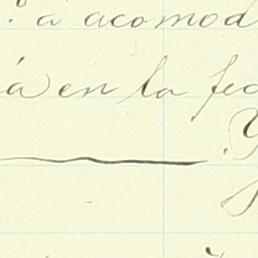 á acomod
á en la fec